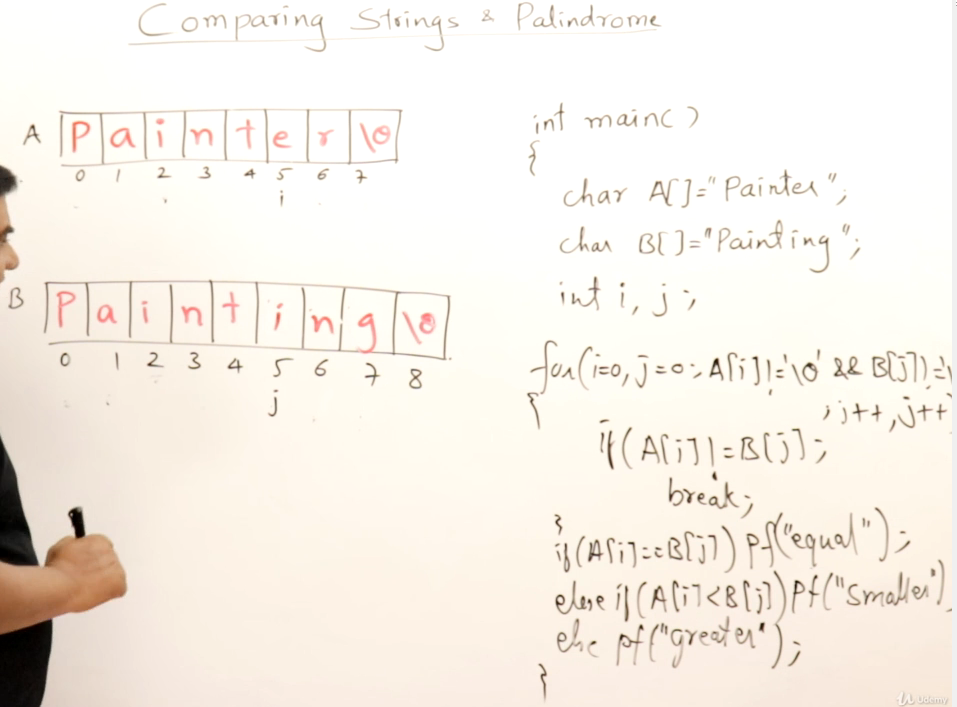 Comparing Strings & Palindrome
A P a i n t e r \0
0 1 2 3 4 5 6 7
i
B P a i n t i n g \0
0 1 2 3 4 5 6 7 8
j
int main()
{
char A[]="Painter";
char B[]="Painting";
int i, j;
for(i=0, j=0; A[i]!='\0' && B[j]!='\
; i++, j++
{
if(A[i]!=B[j];
break;
}
if(A[i]==B[j]) pf("equal");
else if(A[i]<B[j]) pf("smaller")
else pf("greater");
}
Udemy